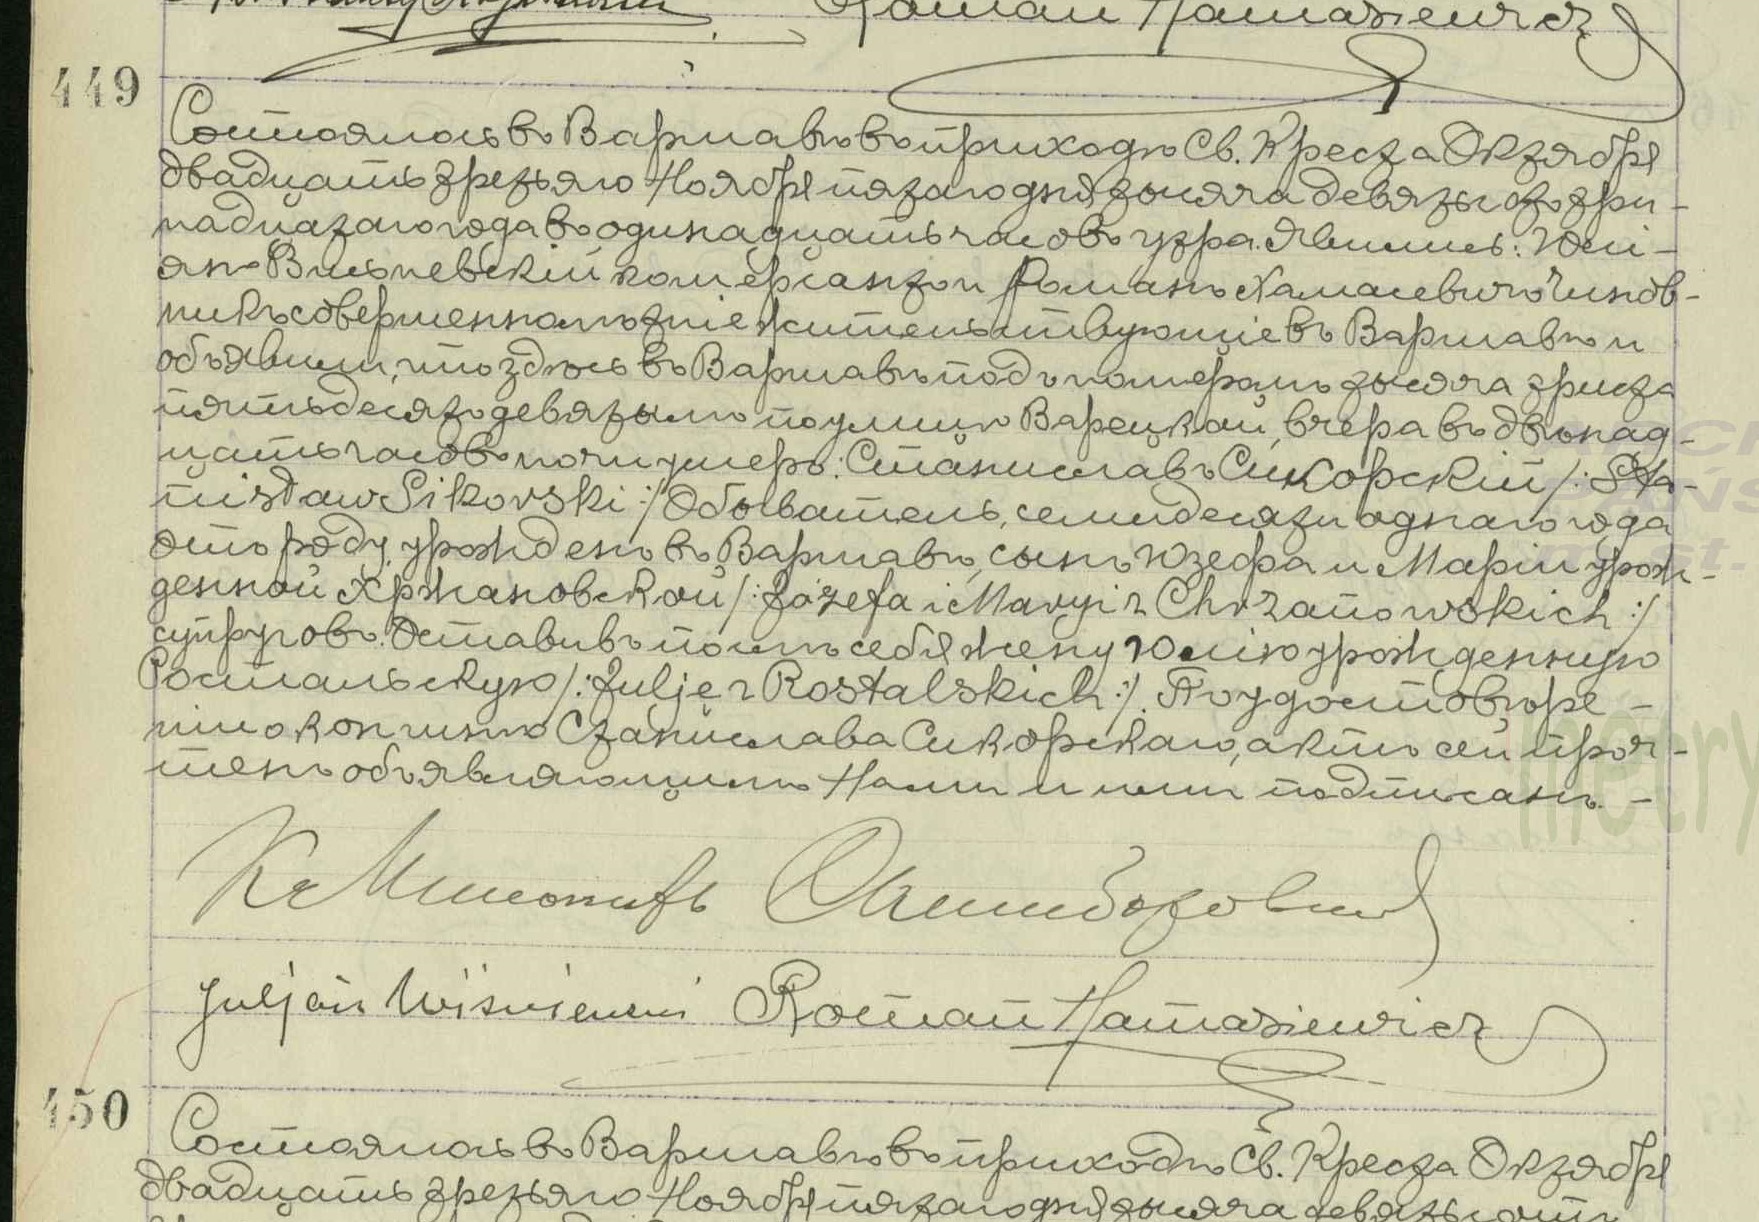 Roman Hamasiewicz
449
Состоялось въ Варшавѣ въ приходѣ Св. Креста Октября
двадцать третьяго Ноября пятаго дня тысяча девятьсотъ три-
надцатаго года въ одинадцать часовъ утра. Явились: Юлі-
янъ Вишневскій комерсантъ и Романъ Хамасевичъ Чинов-
никъ совершеннолѣтніе жительствующіе въ Варшавѣ и
объявили, что здѣсь въ Варшавѣ подъ номеромъ тысяча триста
пятьдесятъ девятымъ по улицѣ Варецкой, вчера въ двѣнад-
цать часовъ ночи умеръ: Станиславъ Сикорскій /: Sta-
nisław Sikorski :/ Обыватель, семидесяти однаго года
отъ роду, урожденъ въ Варшавѣ, сынъ Юзефа и Маріи урож-
денной Хржановской /: Józefa i Maryi z Chrzanowskich :/
супруговъ. Оставивъ послѣ себя жену Юлію урожденную
Ростальскую /: Julję z Rostalskich :/. По удостовѣре-
ніи о кончинѣ Станислава Сикорскаго, актъ сей проч-
тенъ объявляющимъ Нами и ими подписанъ. -
Julján Wiśniewski Roman Hamasiewicz
450
Состоялось въ Варшавѣ въ приходѣ Св. Креста Октября
двадцать третьяго Ноября пятаго дня тысяча девятьсотъ
metry